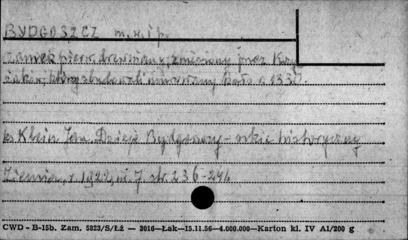 BYDGOSZCZ m. w. i p.
zamek pierw. drewniany, zniszczony przez Krzy-
żaków, którzy zbudowali murowany około r. 1330.
ks. Klein Jan, Dzieje Bydgoszczy - szkic historyczny
Ziemia, r. 1922, nr 7 str. 236-241
CWD - B-15b. Zam. 5823/S/Łż — 3016—Łak—15.11.56—4.000.000—Karton kl. IV A1/200 g